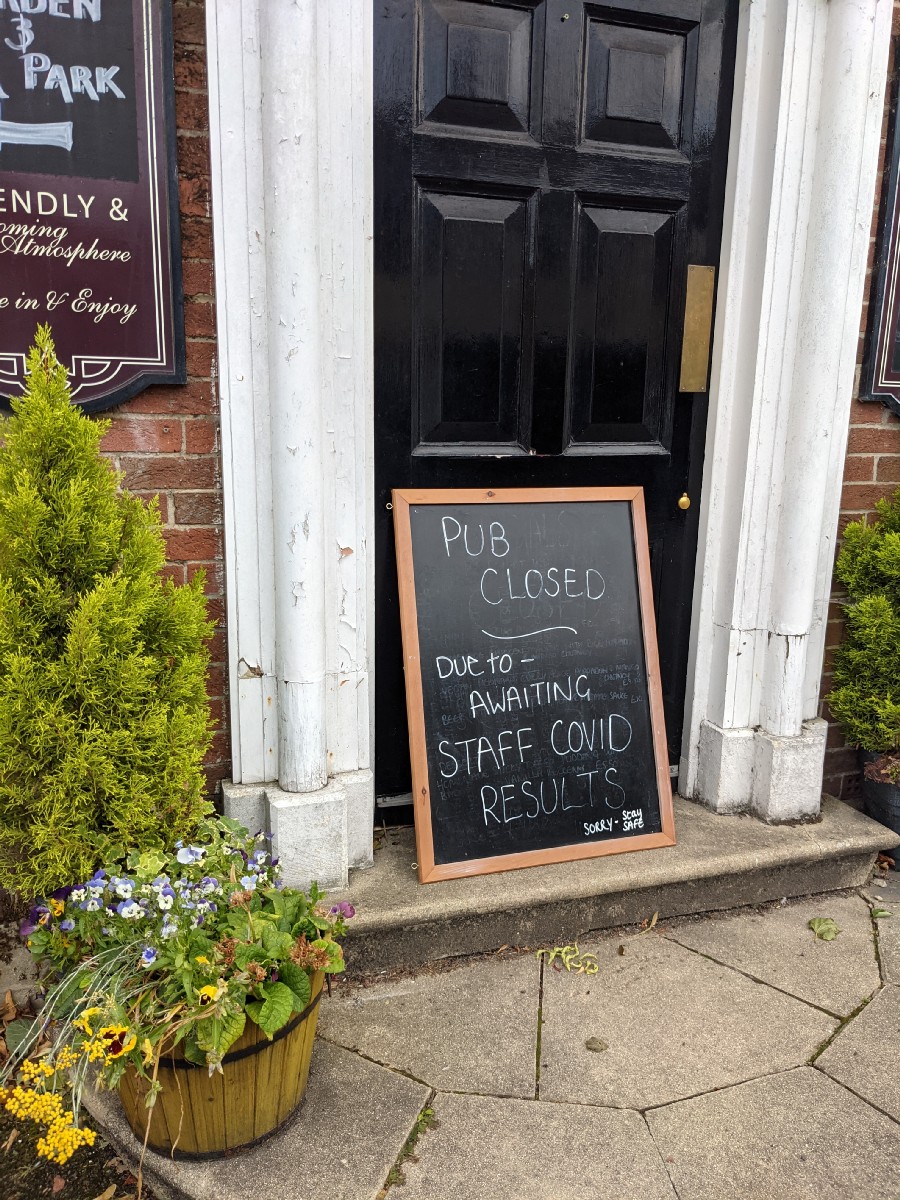 RDEN
&
PARK
ENDLY &
oming
Atmosphere
e in & Enjoy
PUB
CLOSED
DUE to -
AWAITING
STAFF COVID
RESULTS
SORRY - Stay
SAFE